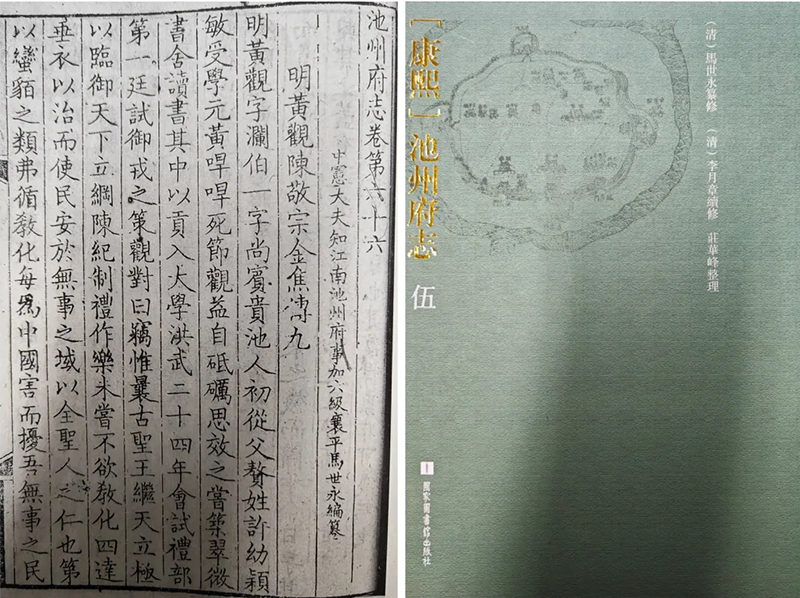 池州府志卷第六十六
中憲大夫知江南池州府事加六級襄平馬世永編纂
明黃觀陳敬宗金焦傳九
明黃觀字瀾伯一字尚賓貴池人初從父贅姓許幼穎
敏受學元黃哻哻死節觀益自砥礪思效之嘗築翠微
書舍讀書其中以貢入大學洪武二十四年會試禮部
第一廷試御戎之策觀對曰竊惟曩古聖王繼天立極
以臨御天下立綱陳紀制禮作樂未嘗不欲教化四達
垂衣以治而使民安於無事之域以全聖人之仁也第
以蠻貊之類弗循敎化每爲中國害而擾吾無事之民
（清）馬世永纂修 （清）李月章續修 莊華峰整理
［康熙］池州府志 伍
國家圖書館出版社